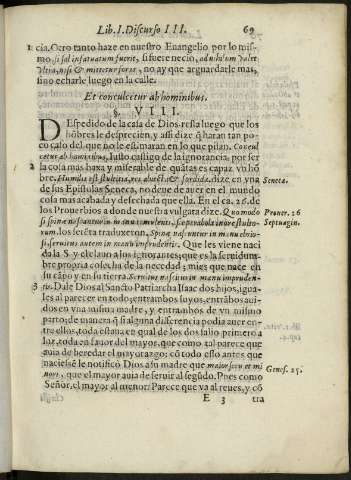 Lib. I. Discurso III. 69
cia. Otro tanto haze en nuestro Evangelio por lo mis-
mo, si sal infatuatum fuerit, si fuere necio, ad nihilum valet
vltra, nisi vt mittatur foras, no ay que arguardarle mas,
sino echarle luego en la calle.
Et conculcetur ab hominibus.
§. VIII.
DEspedido de la casa de Dios resta luego que los
hõbres le desprecien, y assi dize q̃ haran tan po
co caso del que no le estimaran en lo que pisan. Concul
cetur ab hominibus, Iusto castigo de la ignorancia, por ser
2 la cosa mas baxa y miserable de quãtas es capaz vn hõ
bre. Humilis est stultitia, res abiecta & sordida, dize en vna Seneca.
de sus Epistolas Seneca, no deue de aver en el mundo
cosa mas acahada y desechada que ella. En el ca. 26. de
los Proverbios a donde nuestra vulgata dize. Quomodo Prouer. 26
si spina nascantur in manu temulenti, sic parabola in ore stulto- Septuagin.
rum. los setẽta traduxeron, Spinæ nascuntur in manu ebrio-
si, seruitus autem in manu imprudentis. Que les viene naci
da la S. y el clauo a los ignorantes; que es la seruidum-
bre propria cosecha de la necedad; mies que nace en
su cãpo y en su tierra Seruitus nascitur in manu impruden-
3 tis. Dale Dios al Sancto Patriarcha Isaac dos hijos, igua-
les al parecer en todo; entrambos suyos, entrãbos aui-
dos en vna misma madre, y entrambos de vn mismo
parto; de manera q̃ si alguna diferencia podia auer en-
tre ellos, toda estaua en qual de los dos salio primero a
luz, toda en fauor del mayor, que como tal parece que
auia de heredar el mayorazgo; cõ todo esso antes que
naciesse le notificò Dios a su madre que maior seruiet mi
nori, que el mayor auia de seruir al segũdo. Pues como Genes. 25.
Señor, el mayor al menor? Parece que va al reues, y cõ
E 3 tra